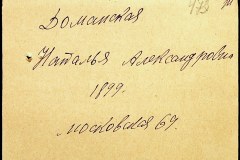 Доманская
Наталья Александровн
1899.
московская 69.